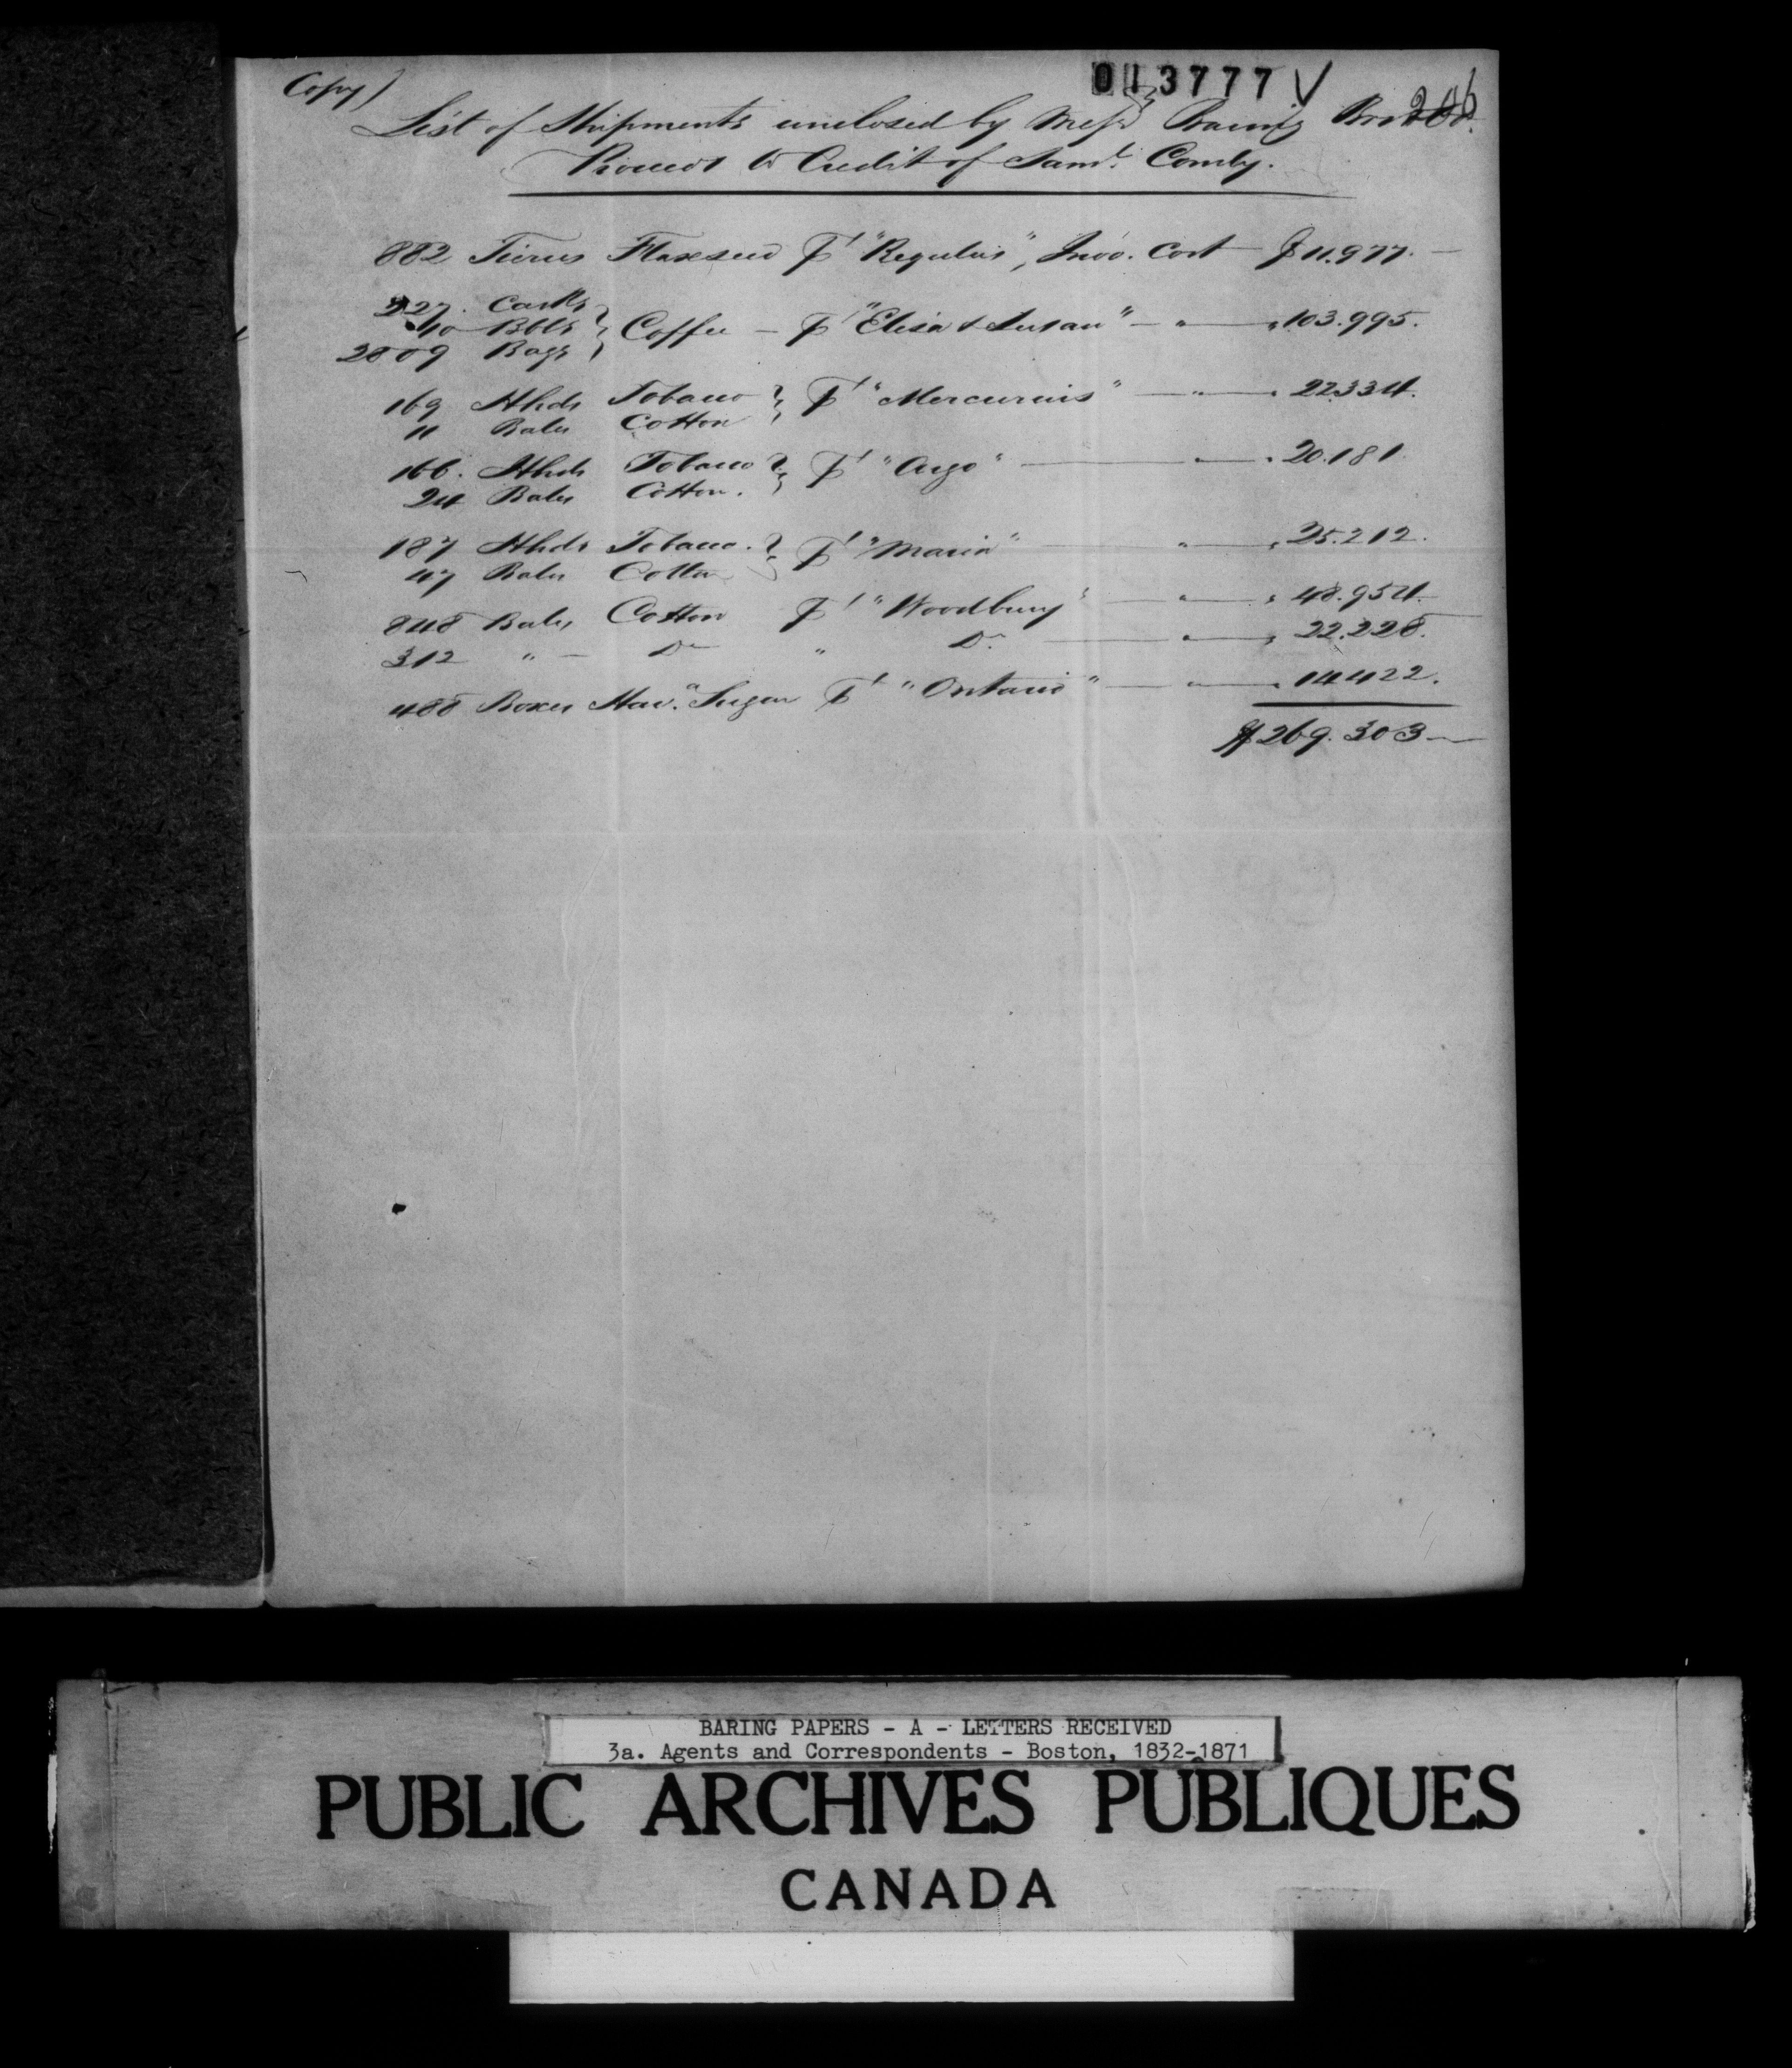 Copy)
013777 ✓
206
List of Shipments enclosed by Messrs Baring Bros
Proceeds to Credit of Saml. Comly.
882 Tierces Flaxseed pr "Regulus", Invo. Cost $11.977.—
227. Casks
40 Bbls } Coffee — pr "Eliza & Susan" — " — " 103.995.
2809 Bags
169 Hhds Tobacco } pr "Mercurius" — " — " 22334.
11 Bales Cotton
166. Hhds Tobacco } pr "Argo" — " — " 20.181.
24 Bales Cotton.
187 Hhds Tobacco. } pr "Maria" — " — " 25.212.
47 Bales Cotton
848 Bales Cotton pr "Woodbury" — " — " 48.954.
312 " — Do " Do. — " — " 22.228.
488 Boxes Hava. Sugar pr "Ontario" — " — " 14422.
$269.303—
BARING PAPERS - A - LETTERS RECEIVED
3a. Agents and Correspondents - Boston, 1832-1871
PUBLIC ARCHIVES PUBLIQUES
CANADA